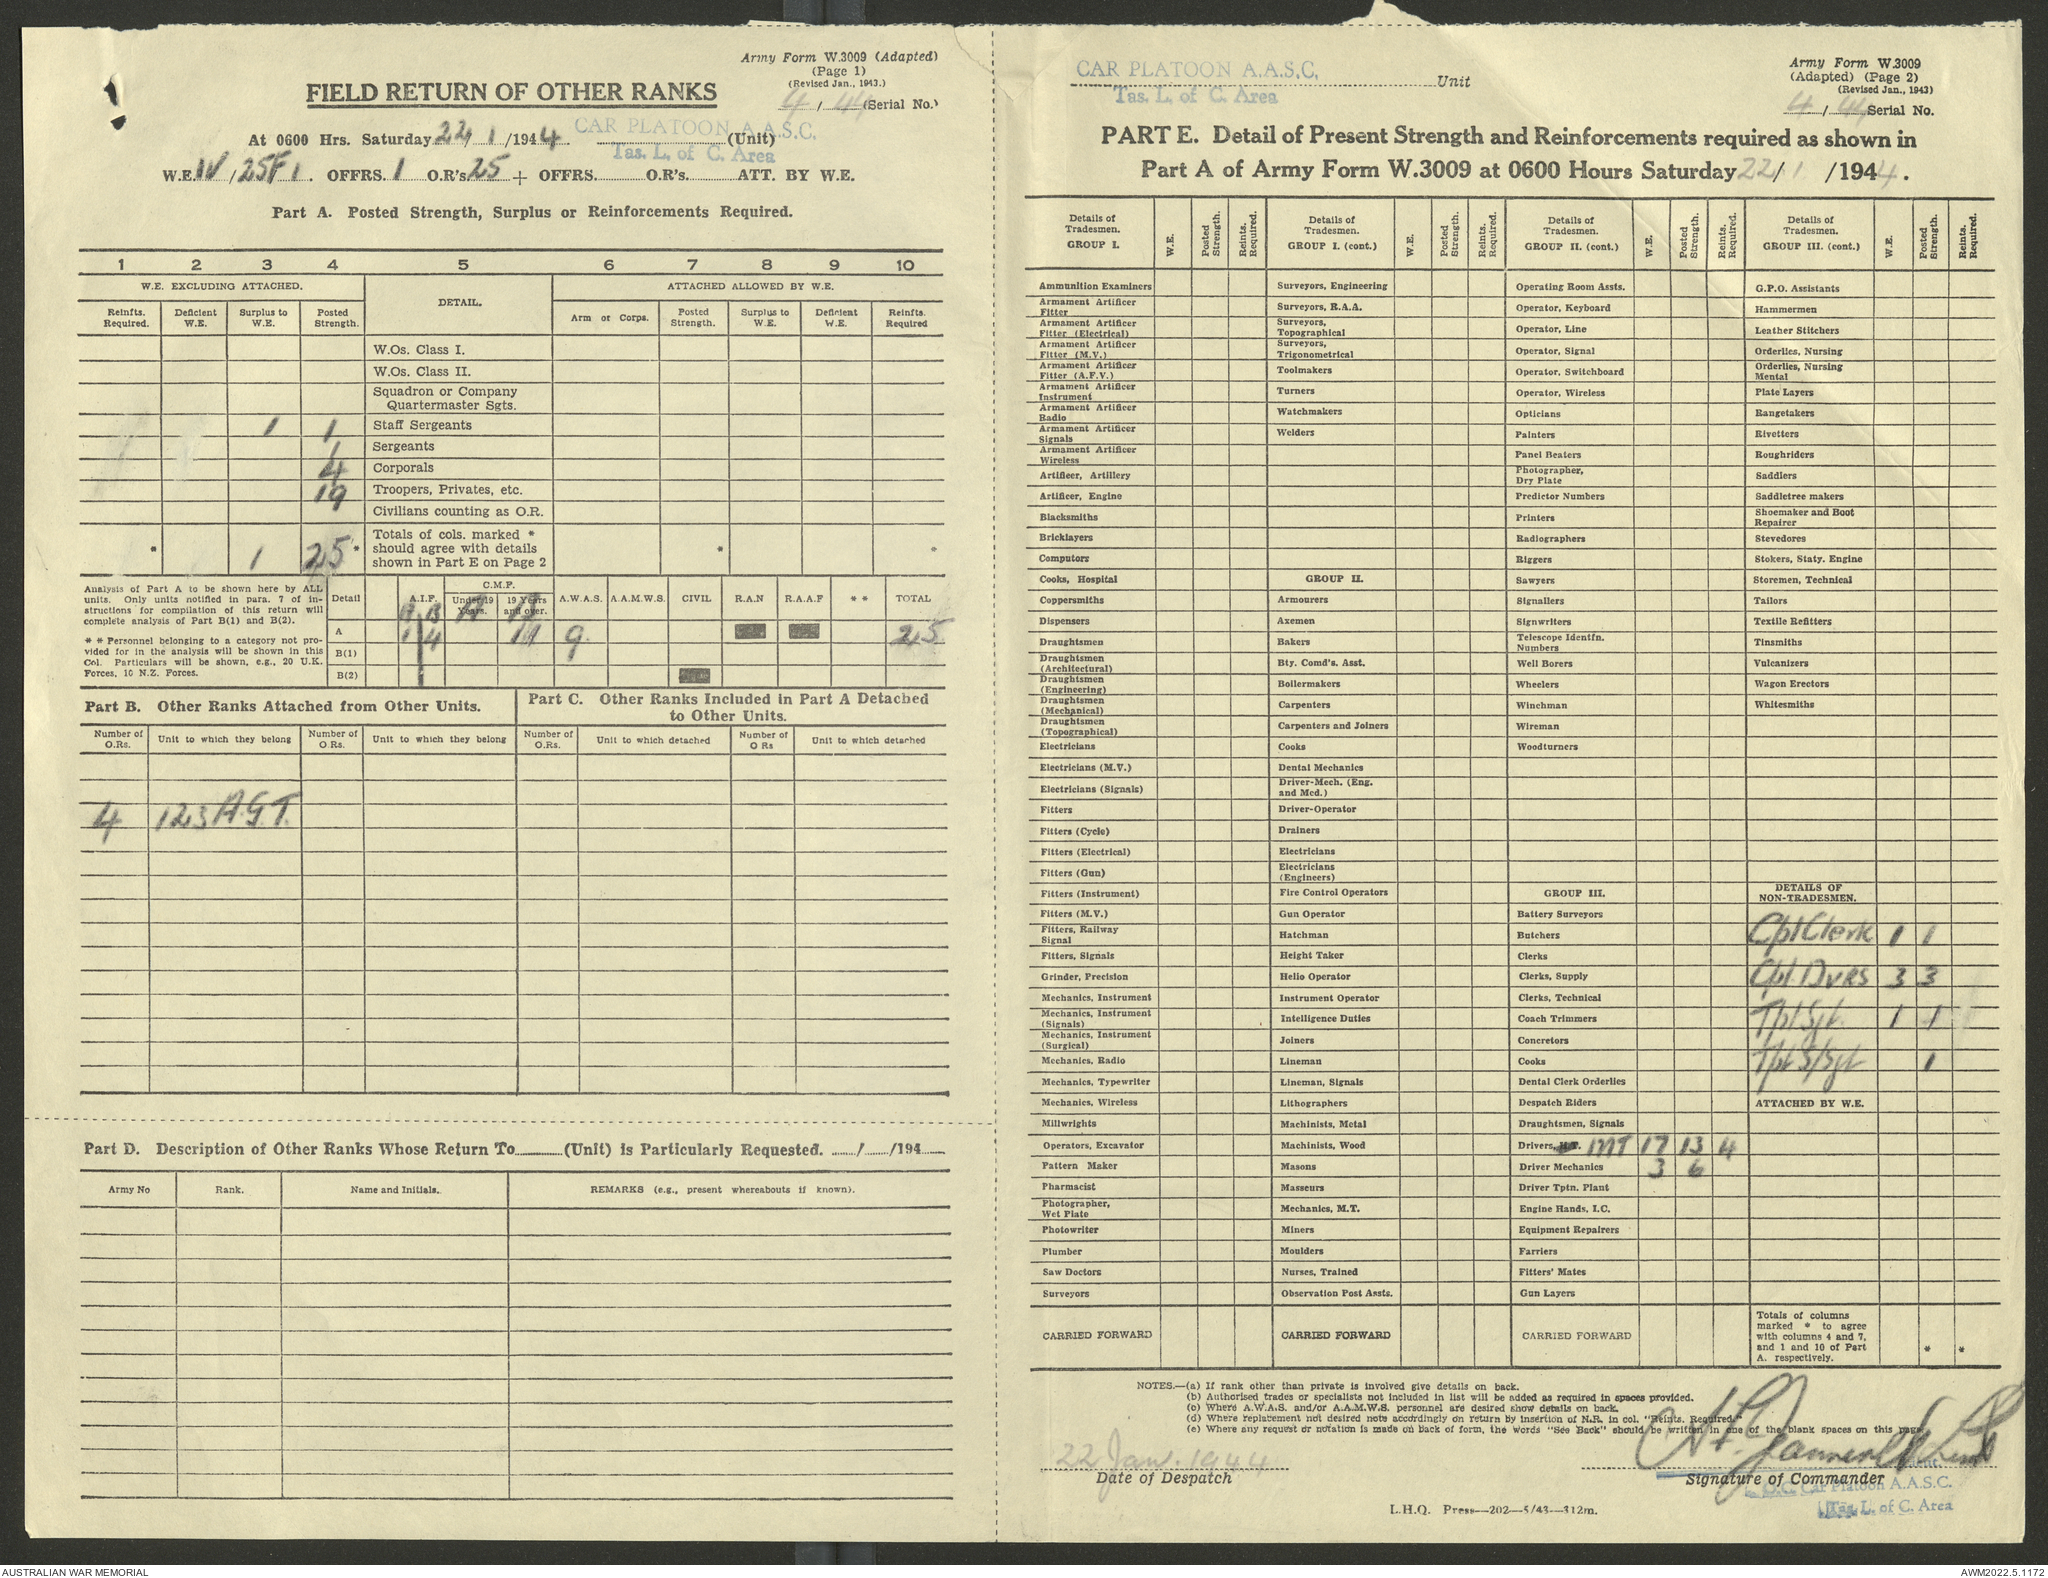 Army Form W.3009 (Adapted)
(Page 1)
(Revised Jan., 1943.)
FIELD RETURN OF OTHER RANKS
4 / 44 (Serial No.)
At 0600 Hrs. Saturday 22/ 1 /1944. CAR PLATOON A.A.S.C. (Unit)
Tas. L. of C. Area
W.E. IV/25F/1. OFFRS. 1 O.R's. 25 + OFFRS. O.R's. ATT. BY W.E.
Part A. Posted Strength, Surplus or Reinforcements Required.
1 2 3 4 5 6 7 8 9 10
W.E. EXCLUDING ATTACHED. DETAIL. ATTACHED ALLOWED BY W.E.
Reinfts. Required. Deficient W.E. Surplus to W.E. Posted Strength. Arm or Corps. Posted Strength. Surplus to W.E. Deficient W.E. Reinfts. Required
W.Os. Class I.
W.Os. Class II.
Squadron or Company
Quartermaster Sgts.
1 1 Staff Sergeants
1 Sergeants
4 Corporals
19 Troopers, Privates, etc.
Civilians counting as O.R.
* 1 25 * Totals of cols. marked * * *
should agree with details
shown in Part E on Page 2
Analysis of Part A to be shown here by ALL
units. Only units notified in para. 7 of in-
structions for compilation of this return will
complete analysis of Part B(1) and B(2).
* * Personnel belonging to a category not pro-
vided for in the analysis will be shown in this
Col. Particulars will be shown, e.g., 20 U.K.
Forces, 10 N.Z. Forces.
Detail A.I.F. C.M.F. Under 19 Years. 19 Years and over. A.W.A.S. A.A.M.W.S. CIVIL R.A.N R.A.A.F * * TOTAL
A B A B
A 1 4 11 9. 25
B(1)
B(2)
Part B. Other Ranks Attached from Other Units.
Part C. Other Ranks Included in Part A Detached
to Other Units.
Number of O.Rs. Unit to which they belong Number of O.Rs. Unit to which they belong Number of O.Rs. Unit to which detached Number of O Rs Unit to which detached
4 123 A.G.T.
Part D. Description of Other Ranks Whose Return To (Unit) is Particularly Requested. / /194
Army No Rank. Name and Initials. REMARKS (e.g., present whereabouts if known).
CAR PLATOON A.A.S.C. Unit
Tas. L. of C. Area
Army Form W.3009
(Adapted) (Page 2)
(Revised Jan., 1943)
4 / 44 Serial No.
PART E. Detail of Present Strength and Reinforcements required as shown in
Part A of Army Form W.3009 at 0600 Hours Saturday 22/ 1 /1944.
Details of Tradesmen. GROUP I. W.E. Posted Strength. Reints. Required.
Ammunition Examiners
Armament Artificer Fitter
Armament Artificer Fitter (Electrical)
Armament Artificer Fitter (M.V.)
Armament Artificer Fitter (A.F.V.)
Armament Artificer Instrument
Armament Artificer Radio
Armament Artificer Signals
Armament Artificer Wireless
Artificer, Artillery
Artificer, Engine
Blacksmiths
Bricklayers
Computors
Cooks, Hospital
Coppersmiths
Dispensers
Draughtsmen
Draughtsmen (Architectural)
Draughtsmen (Engineering)
Draughtsmen (Mechanical)
Draughtsmen (Topographical)
Electricians
Electricians (M.V.)
Electricians (Signals)
Fitters
Fitters (Cycle)
Fitters (Electrical)
Fitters (Gun)
Fitters (Instrument)
Fitters (M.V.)
Fitters, Railway Signal
Fitters, Signals
Grinder, Precision
Mechanics, Instrument
Mechanics, Instrument (Signals)
Mechanics, Instrument (Surgical)
Mechanics, Radio
Mechanics, Typewriter
Mechanics, Wireless
Millwrights
Operators, Excavator
Pattern Maker
Pharmacist
Photographer, Wet Plate
Photowriter
Plumber
Saw Doctors
Surveyors
CARRIED FORWARD
Details of Tradesmen. GROUP I. (cont.) W.E. Posted Strength. Reints. Required.
Surveyors, Engineering
Surveyors, R.A.A.
Surveyors, Topographical
Surveyors, Trigonometrical
Toolmakers
Turners
Watchmakers
Welders
GROUP II.
Armourers
Axemen
Bakers
Bty. Comd's. Asst.
Boilermakers
Carpenters
Carpenters and Joiners
Cooks
Dental Mechanics
Driver-Mech. (Eng. and Med.)
Driver-Operator
Drainers
Electricians
Electricians (Engineers)
Fire Control Operators
Gun Operator
Hatchman
Height Taker
Helio Operator
Instrument Operator
Intelligence Duties
Joiners
Lineman
Lineman, Signals
Lithographers
Machinists, Metal
Machinists, Wood
Masons
Masseurs
Mechanics, M.T.
Miners
Moulders
Nurses, Trained
Observation Post Assts.
CARRIED FORWARD
Details of Tradesmen. GROUP II. (cont.) W.E. Posted Strength. Reints. Required.
Operating Room Assts.
Operator, Keyboard
Operator, Line
Operator, Signal
Operator, Switchboard
Operator, Wireless
Opticians
Painters
Panel Beaters
Photographer, Dry Plate
Predictor Numbers
Printers
Radiographers
Riggers
Sawyers
Signallers
Signwriters
Telescope Identfn. Numbers
Well Borers
Wheelers
Winchman
Wireman
Woodturners
GROUP III.
Battery Surveyors
Butchers
Clerks
Clerks, Supply
Clerks, Technical
Coach Trimmers
Concretors
Cooks
Dental Clerk Orderlies
Despatch Riders
Draughtsmen, Signals
Drivers, MT 17 13 4
Driver Mechanics 3 6
Driver Tptn. Plant
Engine Hands, I.C.
Equipment Repairers
Farriers
Fitters' Mates
Gun Layers
CARRIED FORWARD
Details of Tradesmen. GROUP III. (cont.) W.E. Posted Strength. Reints. Required.
G.P.O. Assistants
Hammermen
Leather Stitchers
Orderlies, Nursing
Orderlies, Nursing Mental
Plate Layers
Rangetakers
Rivetters
Roughriders
Saddlers
Saddletree makers
Shoemaker and Boot Repairer
Stevedores
Stokers, Staty. Engine
Storemen, Technical
Tailors
Textile Refitters
Tinsmiths
Vulcanizers
Wagon Erectors
Whitesmiths
DETAILS OF NON-TRADESMEN.
Cpl Clerk 1 1
Cpl. Dvrs 3 3
Tpt Sgt. 1 1
Tpt S/Sgt 1
ATTACHED BY W.E.
Totals of columns
marked * to agree
with columns 4 and 7,
and 1 and 10 of Part
A. respectively. * *
NOTES.—(a) If rank other than private is involved give details on back.
(b) Authorised trades or specialists not included in list will be added as required in spaces provided.
(c) Where A.W.A.S. and/or A.A.M.W.S. personnel are desired show details on back.
(d) Where replacement not desired note accordingly on return by insertion of N.R. in col. "Reints. Required."
(e) Where any request or notation is made on back of form, the words "See Back" should be written in one of the blank spaces on this page.
22 Jan. 1944
Date of Despatch
Signature of Commander
O.C. Car Platoon A.A.S.C.
Tas. L. of C. Area
L.H.Q. Press—202—5/43—312m.
AUSTRALIAN WAR MEMORIAL
AWM2022.5.1172